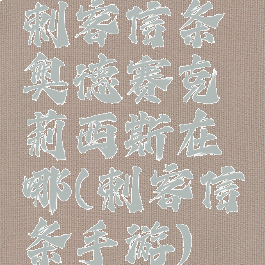 刺客信条
奥德赛克
莉西斯在
哪(刺客信
条手游)